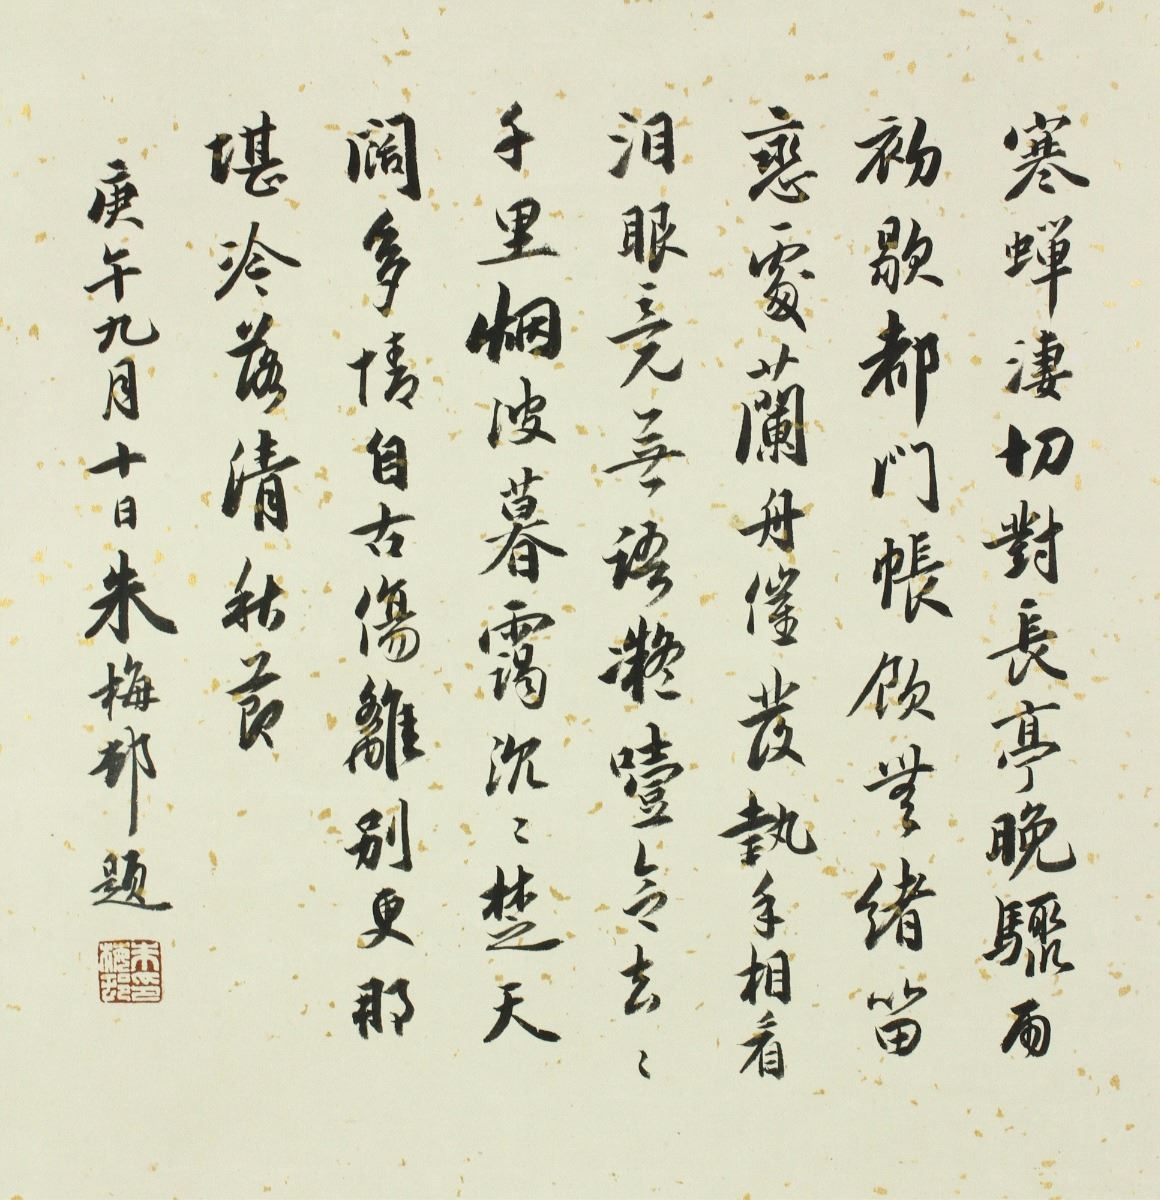 寒蟬淒切對長亭晚驟雨
初歇都門帳飲無緒留
戀處蘭舟催發執手相看
淚眼竟無語凝噎念去〻
千里烟波暮靄沉〻楚天
闊多情自古傷離別更那
堪冷落清秋節
庚午九月十日朱梅邨題
朱梅邨